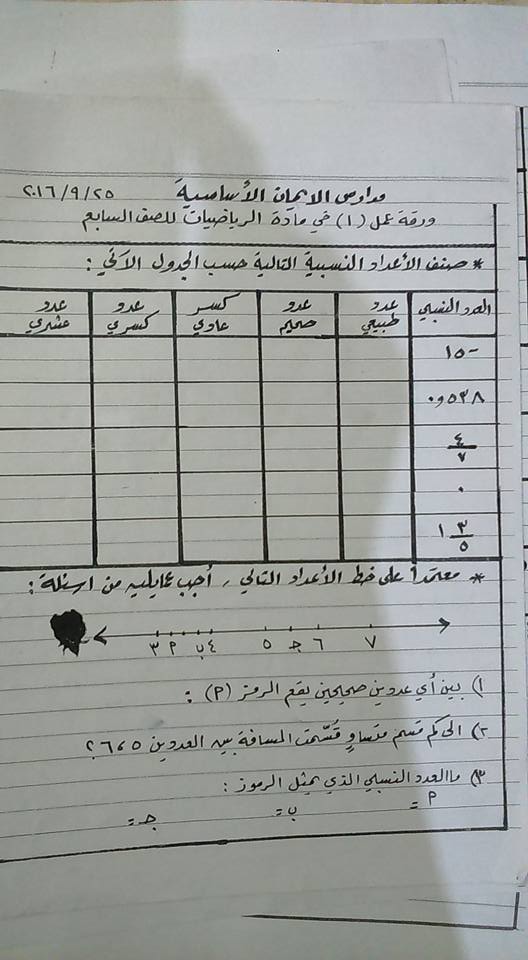 مدارس الايمان الأساسية ٢٠١٦/٩/٢٥
ورقة عمل (١) في مادة الرياضيات للصف السابع
* صنف الأعداد النسبية التالية حسب الجدول الآتي :
العدد النسبي عدد طبيعي عدد صحيح كسر عادي عدد كسري عدد عشري
-١٥
٠,٥٣٨
٤/٧
٠
١ ٣/٥
* معتمداً على خط الأعداد التالي ، أجب عمايليه من اسئلة :
٣ م ب ٤ ٥ جـ ٦ ٧
١) بين أي عددين صحيحين يقع الرمز (م) :
٢) الى كم قسم متساوٍ قُسّمت المسافة بين العددين ٦،٥ ؟
٣) ما العدد النسبي الذي يمثل الرموز :
م = ب = جـ =